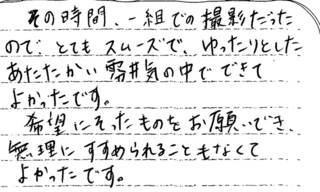 その時間、一組での撮影だった
ので、とてもスムーズで、ゆったりとした
あたたかい雰井気の中でできて
よかったです。
希望にそったものをお願いでき、
無理にすすめられることもなくて
よかったです。